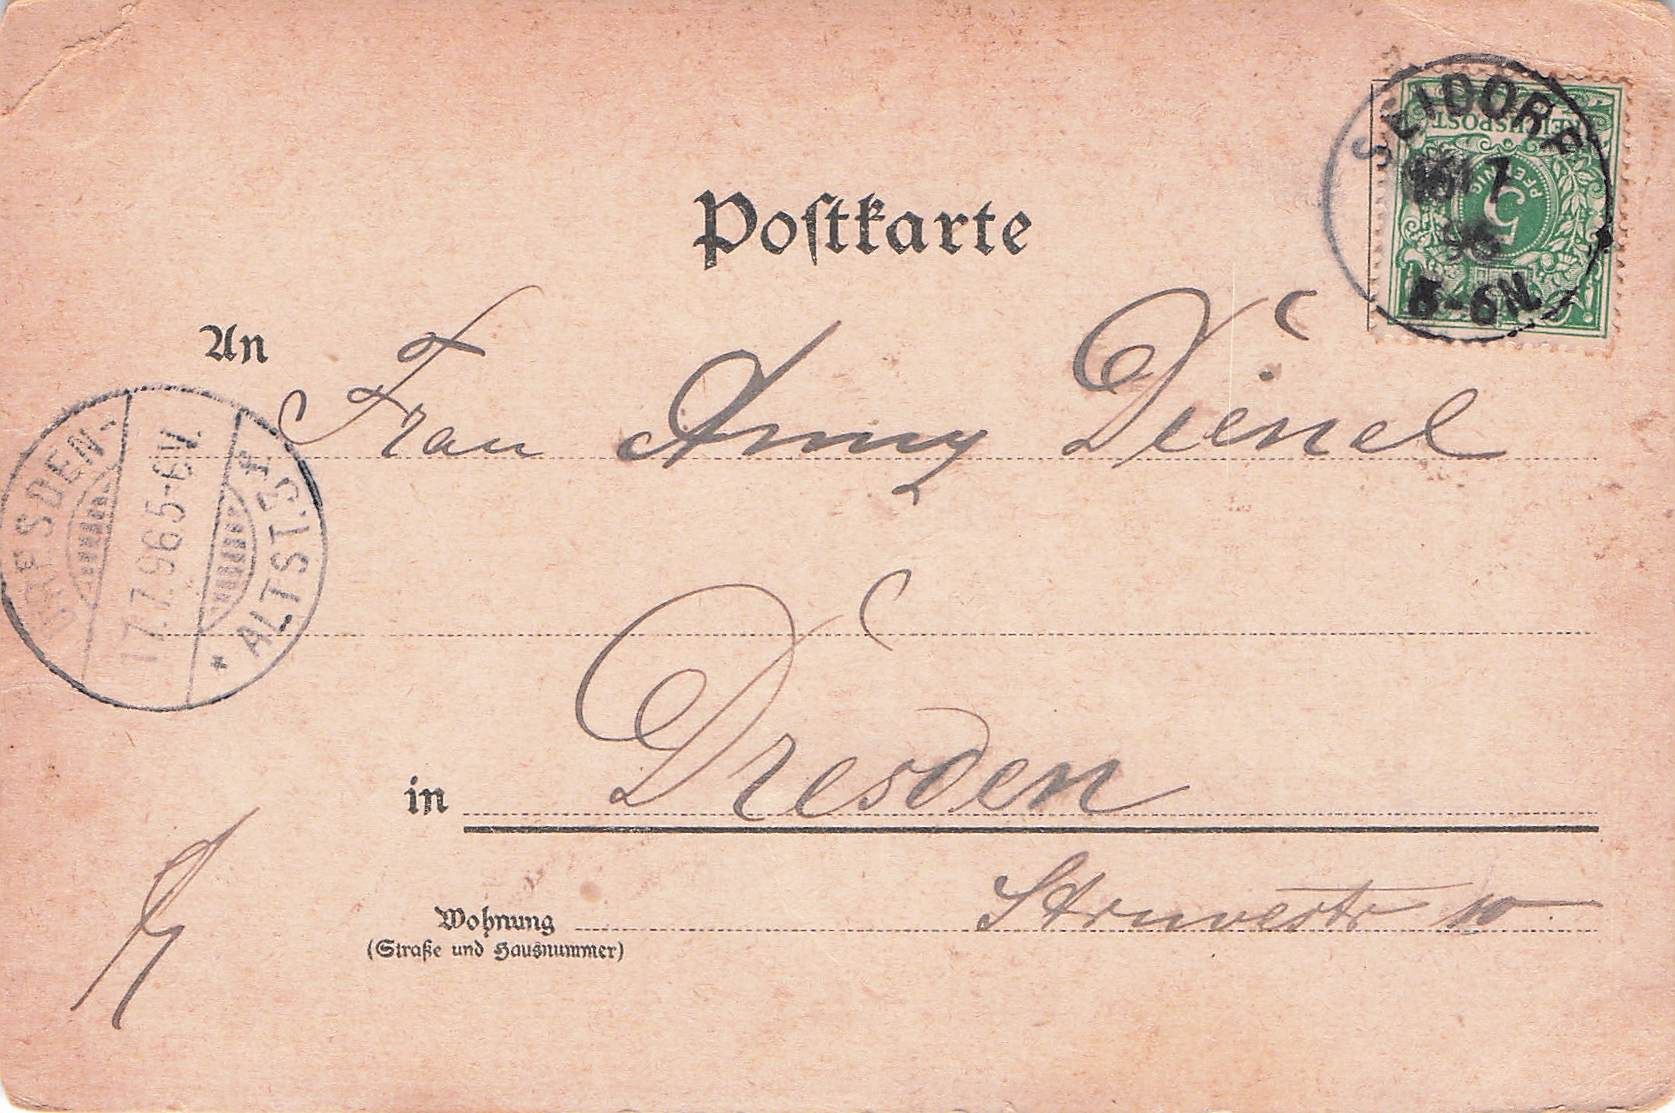 SEIDORF
REICHSPOST
PFENNIG
5
7
96
5-6N.
Postkarte
An Frau Anny Dienel
DRESDEN-ALTST.
17.7.96 5-6V.
in Dresden
Wohnung Struvestr 10
(Straße und Hausnummer)